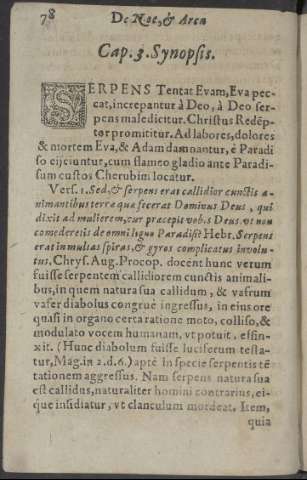 78 De Noe, & Arca
Cap. 3. Synopsis.
SERPENS Tentat Evam, Eva pec-
cat, increpantur à Deo, à Deo ser-
pens maledicitur. Christus Redẽp-
tor promititur. Ad labores, dolores
& mortem Eva, & Adam damnantur, è Paradi
so eijciuntur, cum flameo gladio ante Paradi-
sum custos Cherubim locatur.
Vers. 1. Sed, & serpens erat callidior cunctis a-
nimantibus terræ quæ fecerat Dominus Deus, qui
dixit ad mulierem, cur præcepit vobis Deus ut non
comederetis de omni ligno Paradisi? Hebr. Serpens
erat in multas spiras, & gyros complicatus involu-
tus. Chrys. Aug. Procop. docent hunc verum
fuisse serpentem callidiorem cunctis animali-
bus, in quem natura sua callidum, & vafrum
vafer diabolus congruè ingressus, in eius ore
quasi in organo certa ratione moto, colliso, &
modulato vocem humanam, vt potuit, effin-
xit. (Hunc diabolum fuisse luciferum testa-
tur, Mag. in 2. d. 6.) aptè in specie serpentis tẽ
tationem aggressus. Nam serpens natura sua
est callidus, naturaliter homini contrarius, ei-
que insidiatur, vt clanculum mordeat. Item,
quia